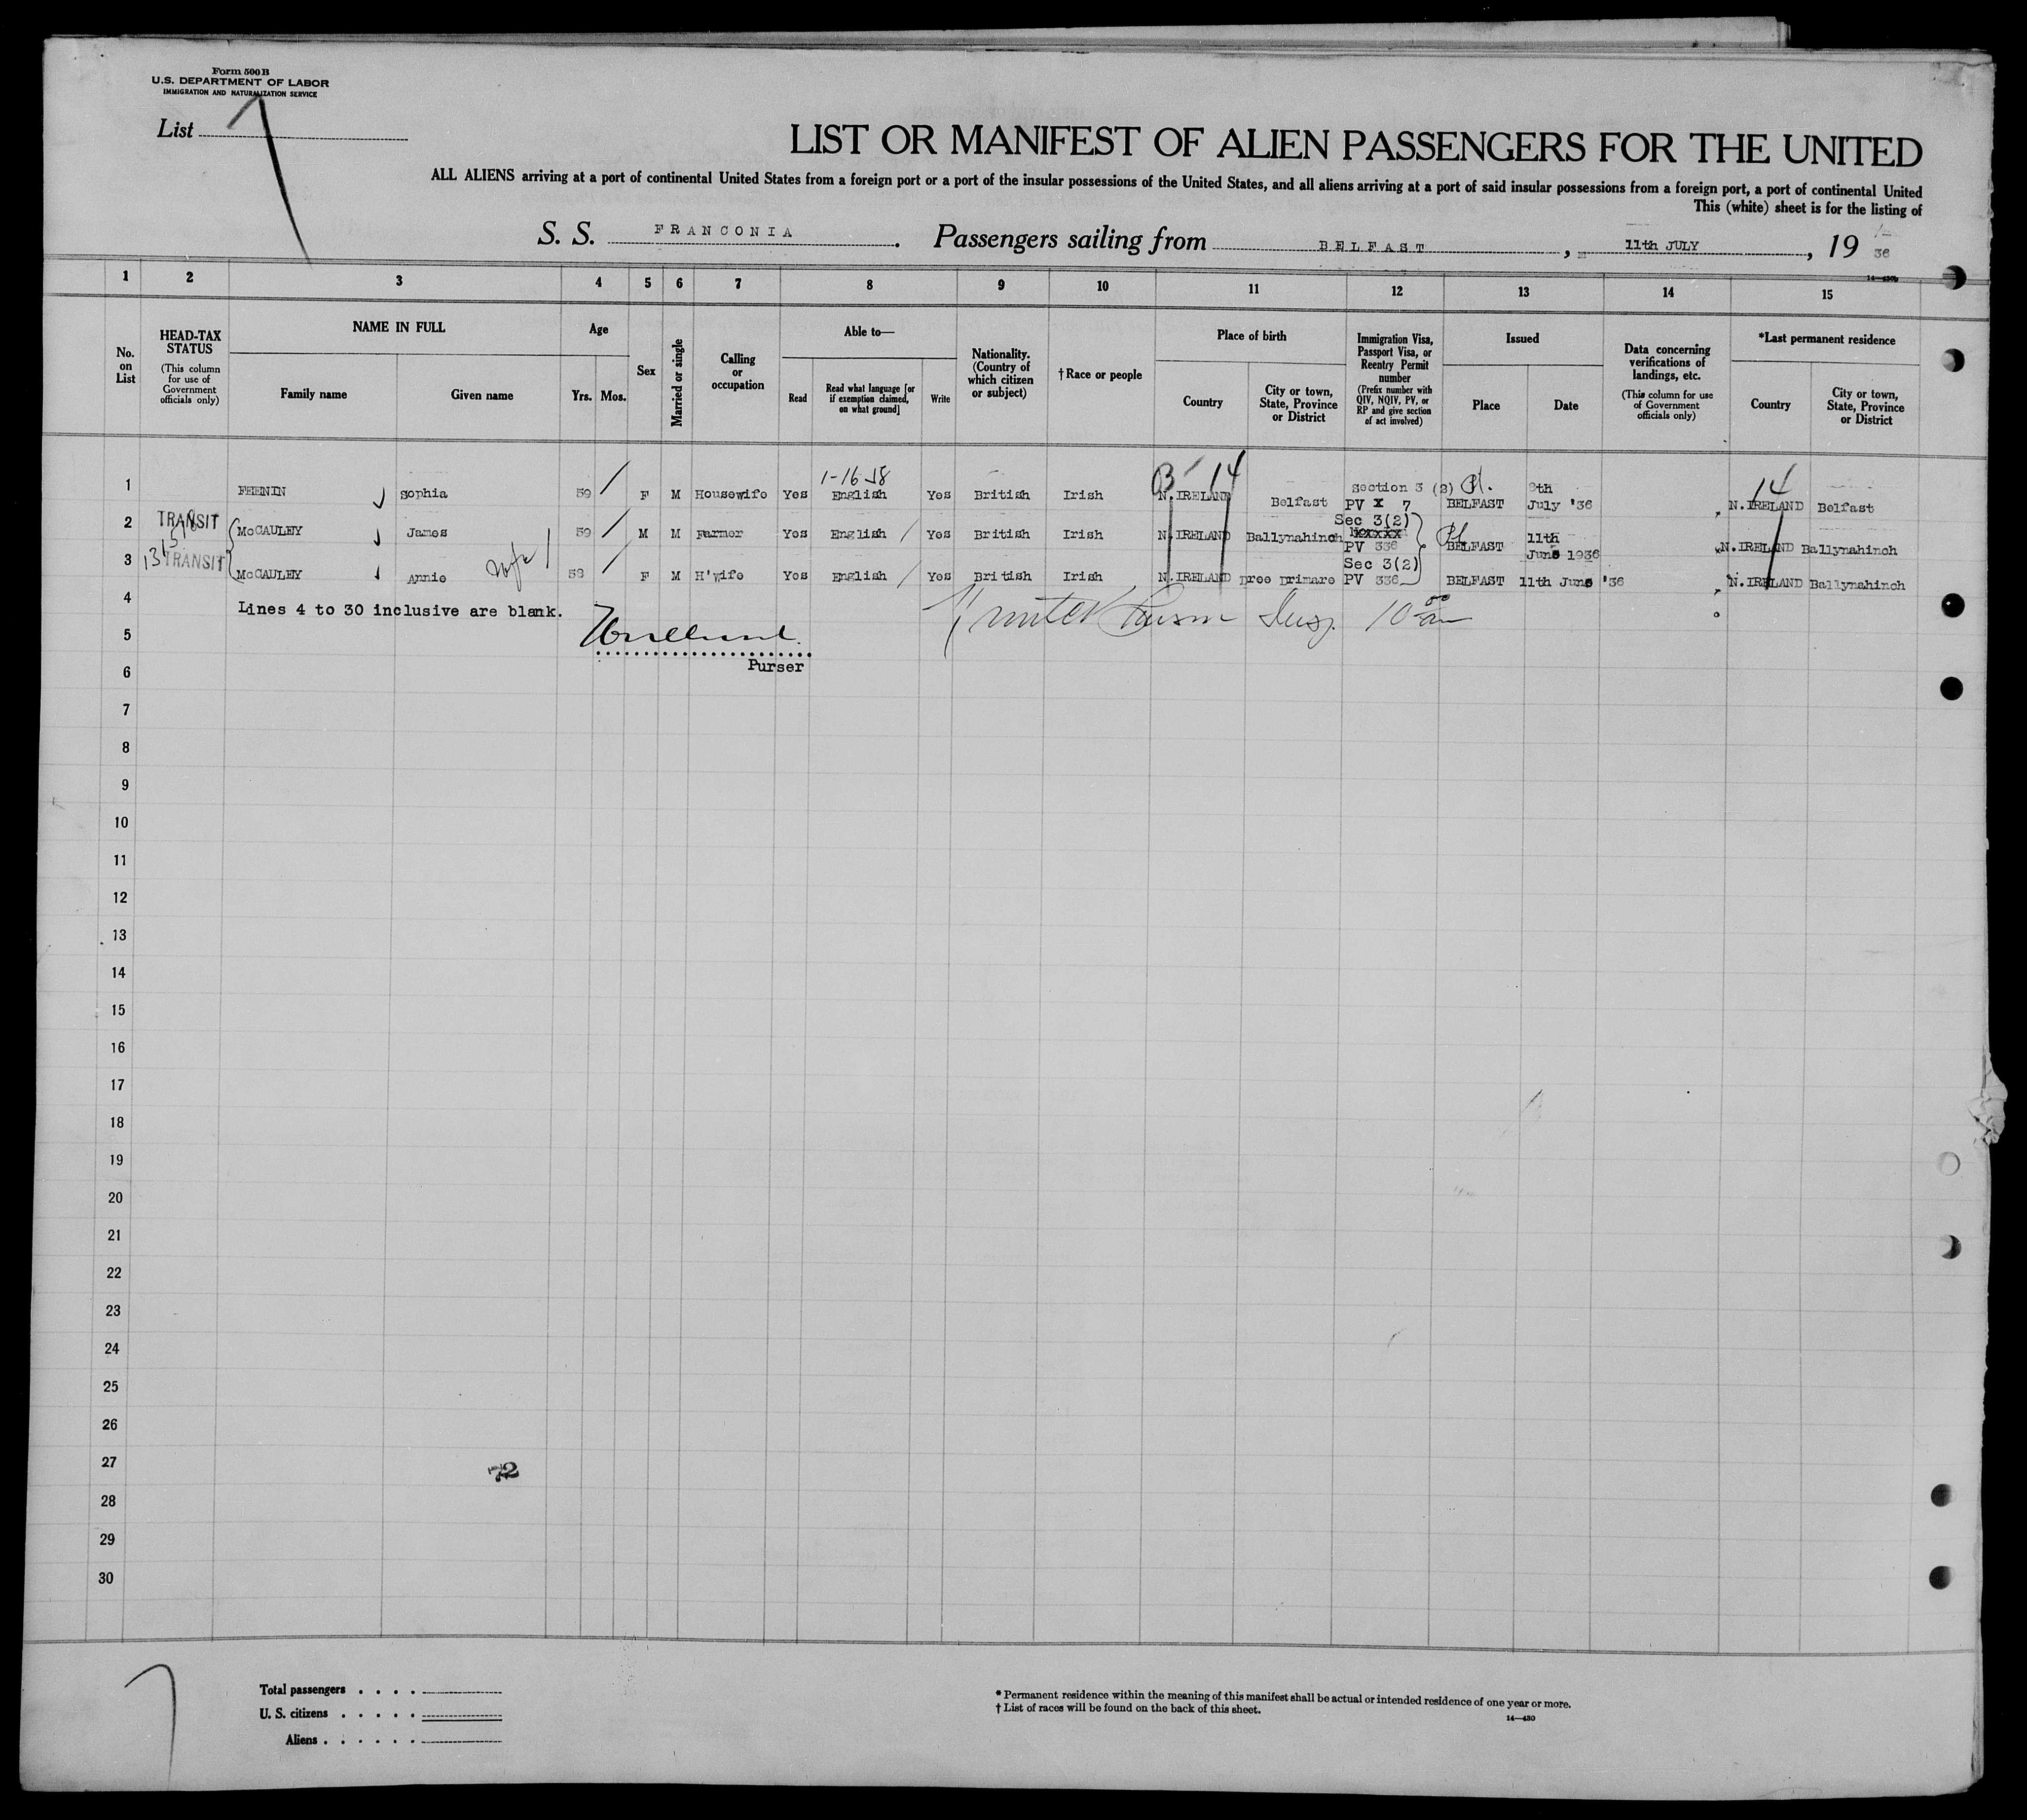 Form 500 B
U.S. DEPARTMENT OF LABOR
IMMIGRATION AND NATURALIZATION SERVICE
List 7
LIST OR MANIFEST OF ALIEN PASSENGERS FOR THE UNITED
ALL ALIENS arriving at a port of continental United States from a foreign port or a port of the insular possessions of the United States, and all aliens arriving at a port of said insular possessions from a foreign port, a port of continental United
This (white) sheet is for the listing of
S. S. FRANCONIA. Passengers sailing from BELFAST, 11th JULY, 19 36
1 2 3 4 5 6 7 8 9 10 11 12 13 14 15
No. on List
HEAD-TAX STATUS
(This column for use of Government officials only)
NAME IN FULL
Family name
Given name
Age
Yrs. Mos.
Sex
Married or single
Calling or occupation
Able to—
Read
Read what language [or if exemption claimed, on what ground]
Write
Nationality. (Country of which citizen or subject)
† Race or people
Place of birth
Country
City or town, State, Province or District
Immigration Visa, Passport Visa, or Reentry Permit number
(Prefix number with QIV, NQIV, PV, or RP and give section of act involved)
Issued
Place
Date
Data concerning verifications of landings, etc.
(This column for use of Government officials only)
*Last permanent residence
Country
City or town, State, Province or District
1-16-38 B 14 14
1 FEENIN Sophia 59 F M Housewife Yes English Yes British Irish N.IRELAND Belfast Section 3 (2) PV X 7 BELFAST 8th July '36 N.IRELAND Belfast
2 TRANSIT McCAULEY James 59 M M Farmer Yes English Yes British Irish N.IRELAND Ballynahinch Sec 3(2) PV 336 BELFAST 11th June 1936 N.IRELAND Ballynahinch
3 TRANSIT McCAULEY Annie wife 58 F M H'wife Yes English Yes British Irish N.IRELAND Dree Drimare Sec 3(2) PV 336 BELFAST 11th June '36 N.IRELAND Ballynahinch
4 Lines 4 to 30 inclusive are blank.
5
Purser
6
7
8
9
10
11
12
13
14
15
16
17
18
19
20
21
22
23
24
25
26
27
72
28
29
30
Total passengers . . . .
U. S. citizens . . . . .
Aliens . . . . . .
* Permanent residence within the meaning of this manifest shall be actual or intended residence of one year or more.
† List of races will be found on the back of this sheet.
14—430